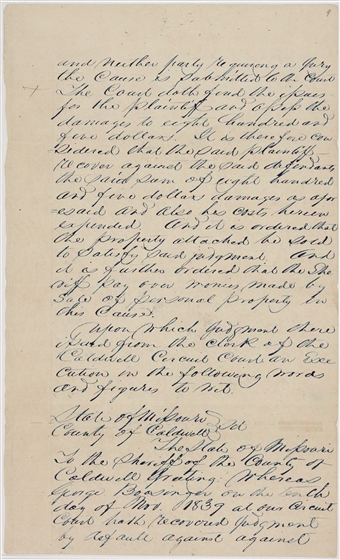 and neither party requiring a jury
the Cause is submitted to the Court
The Court doth find the issues
for the plaintiff and assess the
damages to eight hundred and
five dollars. It is therefore con
sidered that the said plaintiff
recover against the said defendants
the said sum of eight hundred
and five dollars damages as afor
esaid and also his costs herein
expended. And it is ordered that
the property attached be sold
to satisfy said judgment. And
it is further ordered that the She
riff pay over monies made by
Sale of personal property in
this Cause.
upon which judgment there
issued from the clerk of the
Caldwell Circuit Court an Exe
cution in the following words
and figures to wit.
State of Missouri
County of Caldwell Sct
The State of Missouri
To the Sheriff of the County of
Caldwell Greeting. Whereas
George on the
day of Nov. 1839 at our Circuit
Court hath recovered judgment
by default against against